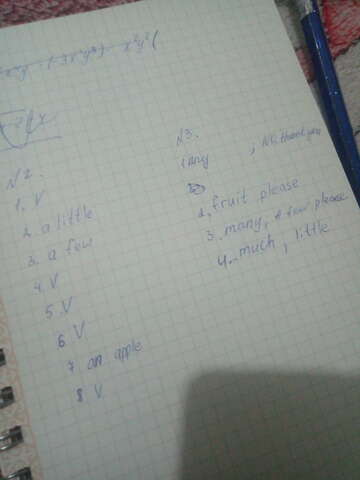 N2.
1. V
2. a little
3. a few
4. V
5. V
6 V
7 an apple
8 V
N3.
1 any , No, thank you
2. fruit please
3. many, a few please
4. much, little